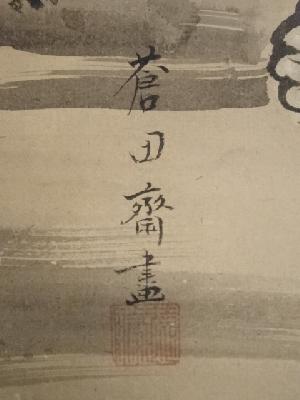 蒼田齋畫